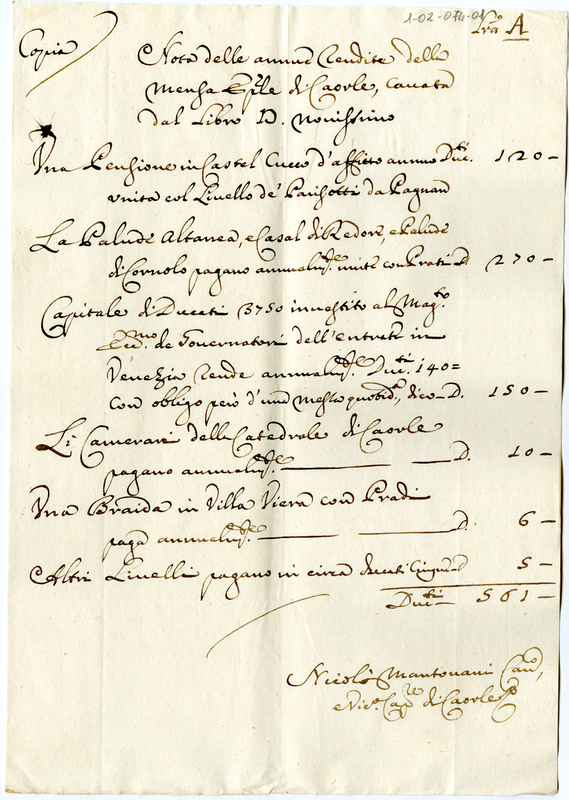 1-02-074-01
Lrã A
Copia
Nota delle annue Rendite della
Mensa Epãle di Caorle, cavata
dal Libro D. novissimo
Una Pensione in Castel Cucco d'affitto annuo Duc.ti 120 –
unita col Livello de' Parisotti da Pagnan
La Palude Altanea, e Casal di Redori, e Palude
di Cornolo pagano annualm.te unite con Prati D. 270 –
Capitale di Ducati 3750 investito al Mag.to
Ecc.mo de Governatori dell'entrate in
Venezia, rende annualm.te Duc.ti 140 =
con obligo però d'una messa quotid.a, dico – D. 150 –
Li Camerari della Catedrale di Caorle
pagano annualm.te D. 10 –
Una Braida in Villa Viera con Pradi
paga annualm.te D. 6 –
Altri Livelli pagano in circa ducati Cinque D 5 –
Duc.ti – 561 –
Nicolò Mantovani Can.o,
e Vic.o Cap.re di Caorle